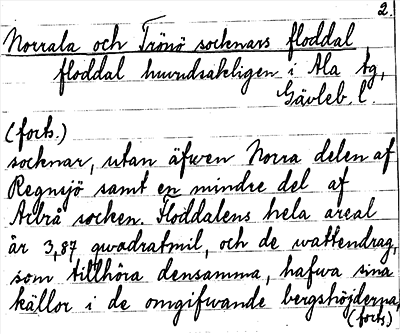 2.
Norrala och Trönö socknars floddal
floddal huvudsakligen i Ala tg,
Gävleb. l.
(forts.)
socknar, utan äfwen Norra delen af
Regnsjö samt en mindre del af
Arbrå socken. Floddalens hela areal
är 3,87 qwadratmil, och de wattendrag,
som tillhöra densamma, hafwa sina
källor i de omgifwande bergshöjderna,
(forts.)